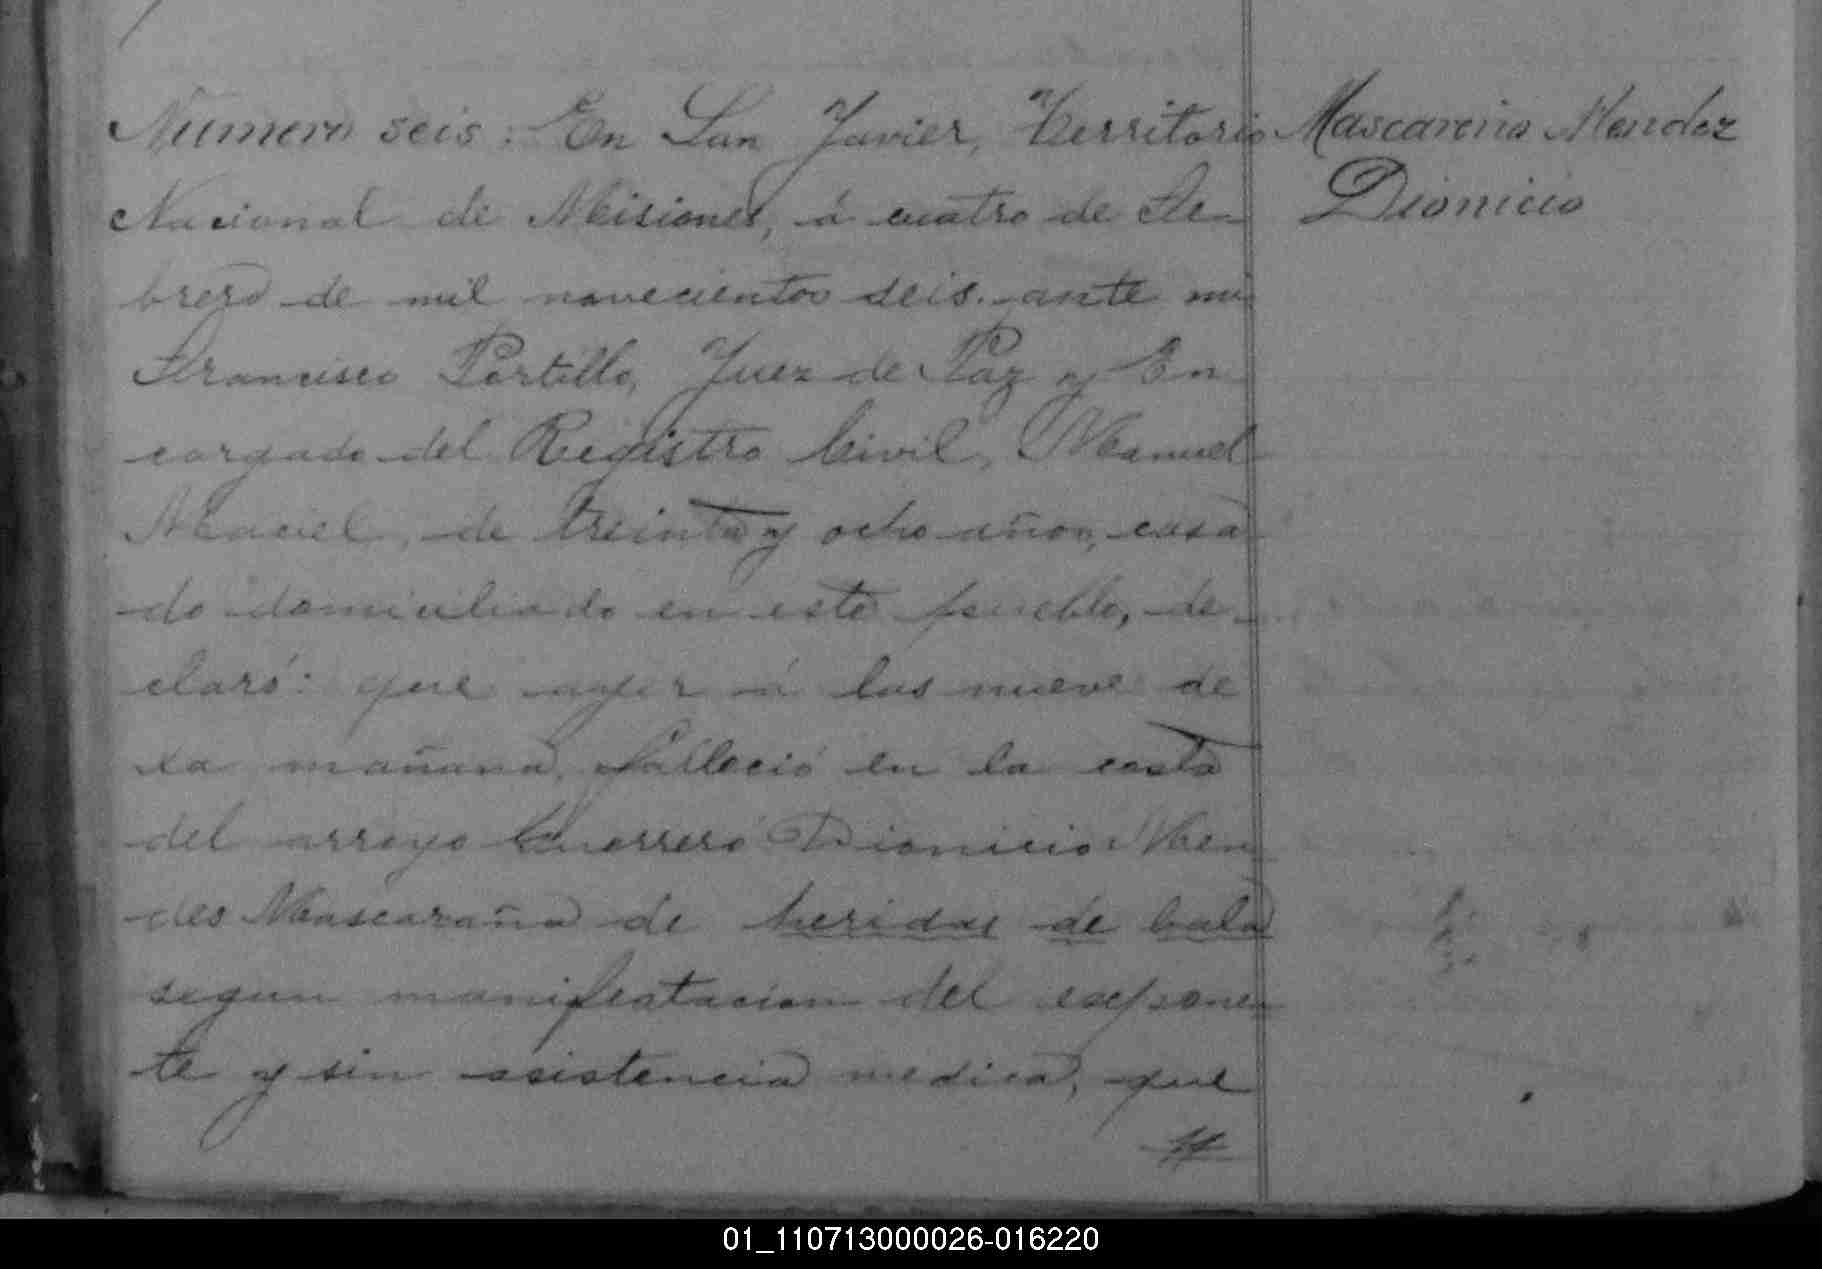 Numero seis: En San Javier, Territorio
Nacional de Misiones, á cuatro de Fe-
brero de mil novecientos seis. ante mi
Francisco Portillo, Juez de Paz y En
cargado del Registro Civil, Manuel
Maciel, de treinta y ocho años, casa
do domiciliado en este pueblo, de-
claró: que ayer á las nueve de
la mañana, falleció en la costa
del arroyo Guerrero Dionicio Men
des Mascaraña de heridas de bala
segun manifestacion del esponen
te y sin asistencia medica, que
Mascareña Mendez
Dionicio
01_110713000026-016220